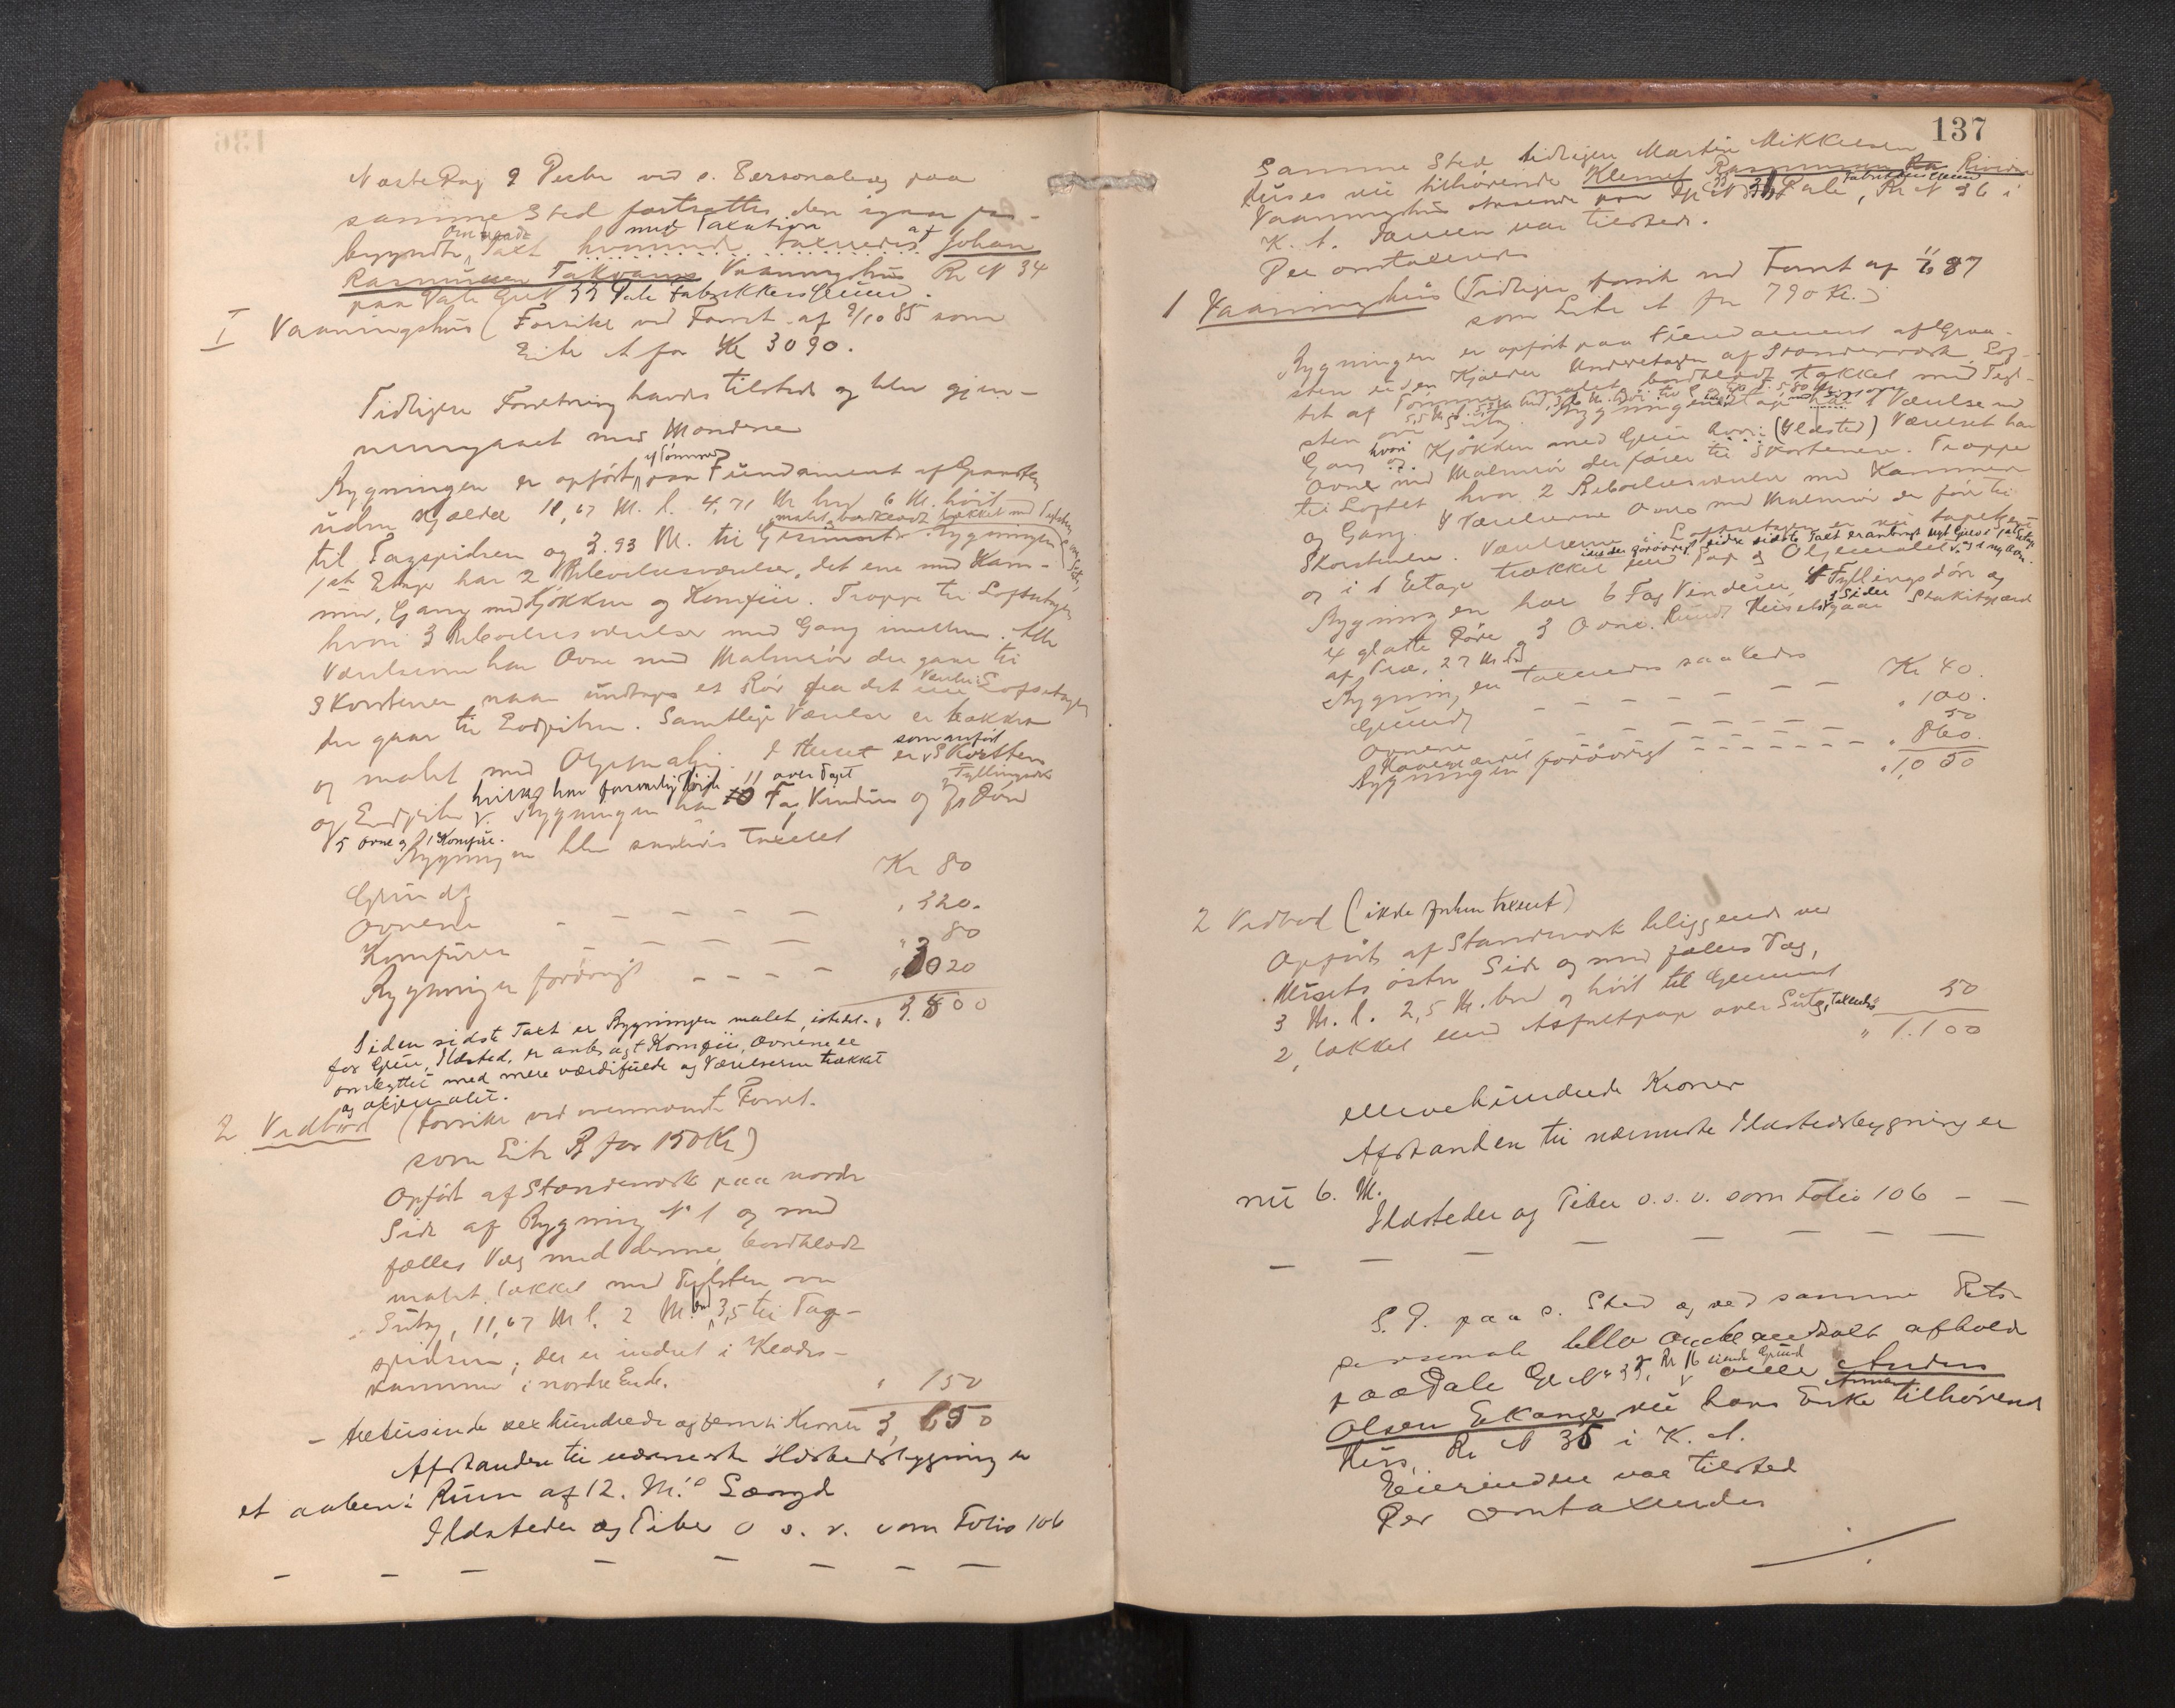 Næste Dag 9 Decbr ved s. Personale og paa
samme Sted fortsattes den igaar paa-
begyndte Omtaxt med Taxation af Johan
Rasmussen Takvams Vaaningshus Br N 34
paa Dale G N 33 Dale Fabrikkers Grund.
I Vaaningshus (Forsikr ved Forret. af 9/10 85 som
Litr A for Kr 3090.
Tidligere Forretning havdes tilstede og blev gjen-
nemgaaet med Mændene
Bygningen er opført af Tømmer paa Fundament af Graasten
uden Kjælder 11,67 M. l. 4,71 M. bred 6 M. høit
til Tagspidsen og 3.93 M. til Gesimsen. Bygningen
malet, bordklædt tækket med Taglsten over Sutag,
1ste Etage har 2 Beboelsesværelser, det ene med Kam-
mer, Gang med Kjøkken og Komfur. Trappe til Loftsetagen
hvori 3 Beboelsesværelser med Gang imellem. Alle
Værelserne har Ovne med Malmrør der gaar til
Skorstenen naar undtages et Rør fra det ene Værelse i Loftsetagen
der gaar til Endpiben. Samtlige Værelser er trækket
og malet med Oljemaling. I Huset er som anført Skorsten
og Endpibe hvilke har forsvarlig Høide over Taget
Bygningen har 11 Fag Vinduer og 7 Fyllingsdøre
5 Ovne og 1 Komfur.
Bygningen blev saaledes taxeret
Grundt Kr 80
Ovnene - - - - - " 320.
Komfuren - - - - " 80
Bygningen forøvrigt - - - - " 3020
" 3.500
Siden sidste Taxt er Bygningen malet, istedet-
for Grue, Ildsted, er anbragt Komfur, Ovnene er
ombyttet med mere værdifulde og Værelserne trækket
og oljemalet.
2 Vedbod (Forsikr ved ovennævnte Forret.
som Litr B for 150 Kr)
Opført af Standerværk paa nordre
Side af Bygning N 1 og med
fælles Væg med denne, bordklædt
malet. tækket med Taglsten over
Sutag, 11,67 M l. 2 M. bred 3,5 til Tag-
spidsen; der er indret i Klædes-
kammer i nordre Ende.
" 150
- tretusinde sex hundrede og femti Kroner 3,650
Afstanden til nærmeste Ildstedsbygning er
et aabent Rum af 12. M.s Længd
Ildsteder og Piber o. s. v. som Folio 106
- - - - - - - -
137
Samme Sted tidligere Martin Mikkelsen
Huses nu tilhørende Klemet Rasmussen
Vaaningshus staaende paa G N 33 Dale, Fabrikkens Grund Br N 36 i
K. A. Manden var tilstede.
Der omtaxeredes
1 Vaaningshus (Tidligere forsik ved Forret af 11/6 87
som Litr A for 790 Kr.)
Bygningen er opført paa Fundament af Graa-
sten uden Kjælder Underetagen af Standerværk, Lof-
tet af Tømmer, malet, bordklædt, tækket med Tagl-
sten over Sutag. Bygningens
Gang og Kjøkken med Grue hvori (Ildsted) Værelset har
Ovne med Malmrør der fører til Skorstenen. Trappe
til Loftet hvor 2 Beboelsesværelser med Kammer
og Gang. Værelserne Ovne med Malmrør der fører til
Skorstenen. Værelserne i Loftsetagen er nu tapetseret
og i 1 Etage trækket med Pap og Oljemalet
Bygningen har 6 Fag Vinduer, 4 Fyllingsdøre og
4 glatte Døre, 3 Ovne. Rundt Huset paa 3 Sider gaar Stakitgjærd
af Træ. 27 M. l.
Bygningen taxeredes saaledes
Grundt - - - - - - Kr 40.
Ovnene - - - - - " 100.
Havegjærdet 50
Bygningen forøvrigt - - - - - - - " 860.
" 1,050
2 Vedbod (ikke før taxeret)
Opført af Standerværk beliggende ved
Husets østre Side og med fælles Væg,
3 M. l. 2,5 M. bred og høit til Gesimset
2, tækket med Asfaltpap over Sutag, taxeredes 50
" 1.100
ellevehundrede Kroner
Afstanden til nærmeste Ildstedsbygning er
nu 6. M.
Ildsteder og Piber o. s. v. som Folio 106 - -
- - - - - - -
S. D. paa s. Sted og ved samme Rets-
personale blev Omtaxt afholdt
paa Dale G N 33, Br 16 over Anders
Olsen Ekanger nu hans Enke Anna tilhørende
Hus, Br N 35 i K. A.
Eierinden var tilsted
Der omtaxeredes